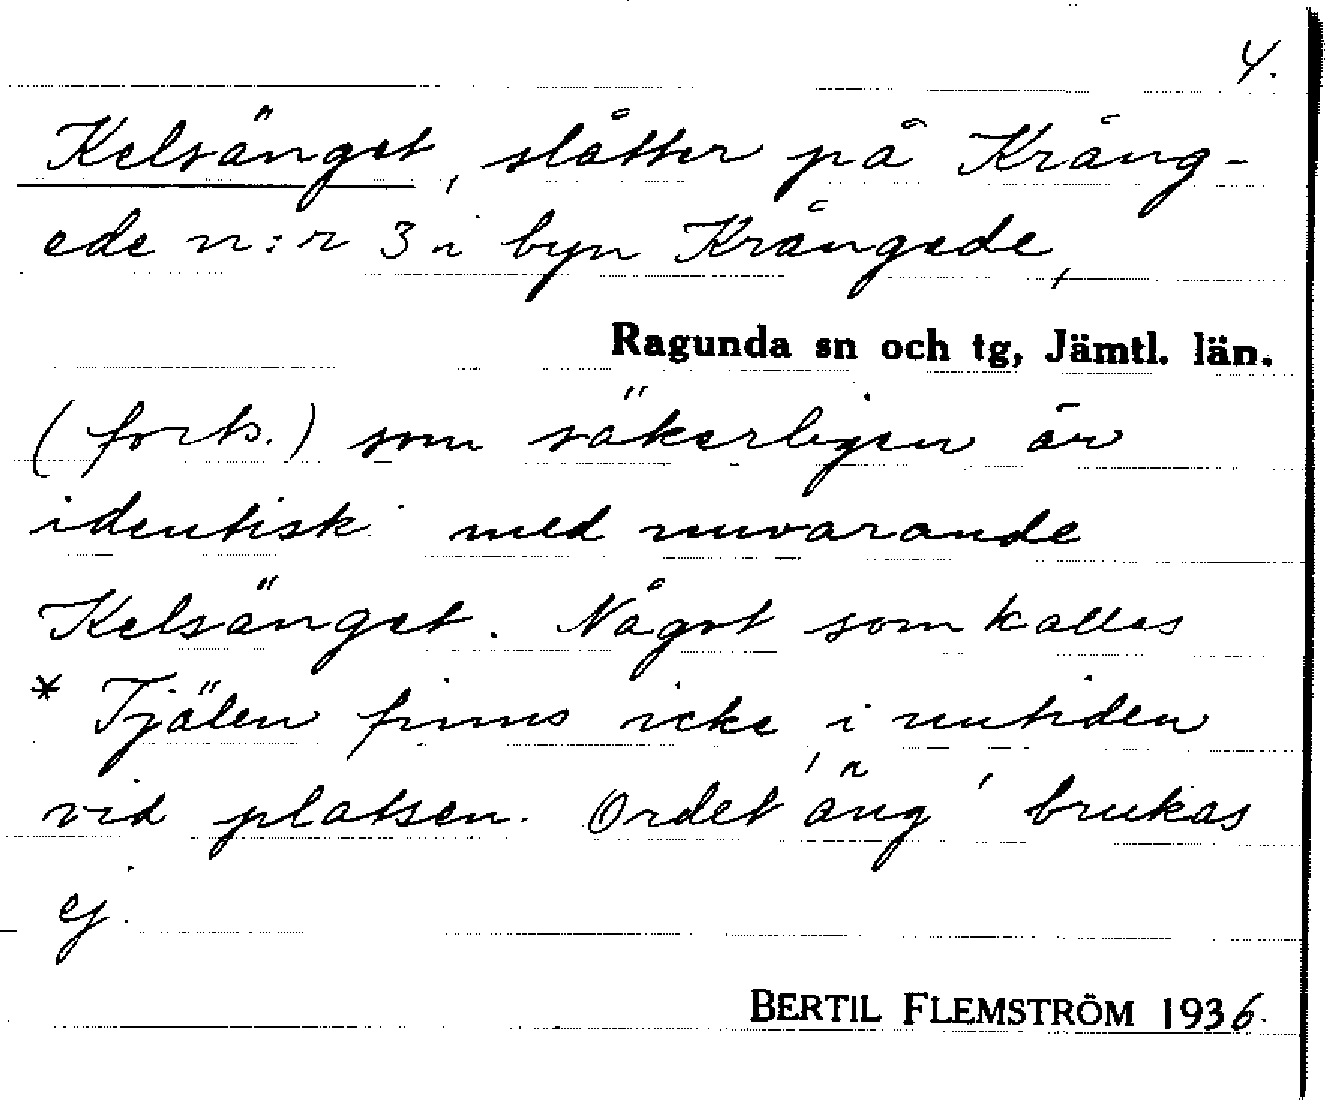 4.
Kelsänget, slåtter på Krång-
ede n:r 3 i byn Krångede,
Ragunda sn och tg, Jämtl. län.
(forts.) som säkerligen är
identisk med nuvarande
Kelsänget. Något som kallas
* Tjälen finns icke i nutiden
vid platsen. Ordet 'äng' brukas
ej.
BERTIL FLEMSTRÖM 1936.